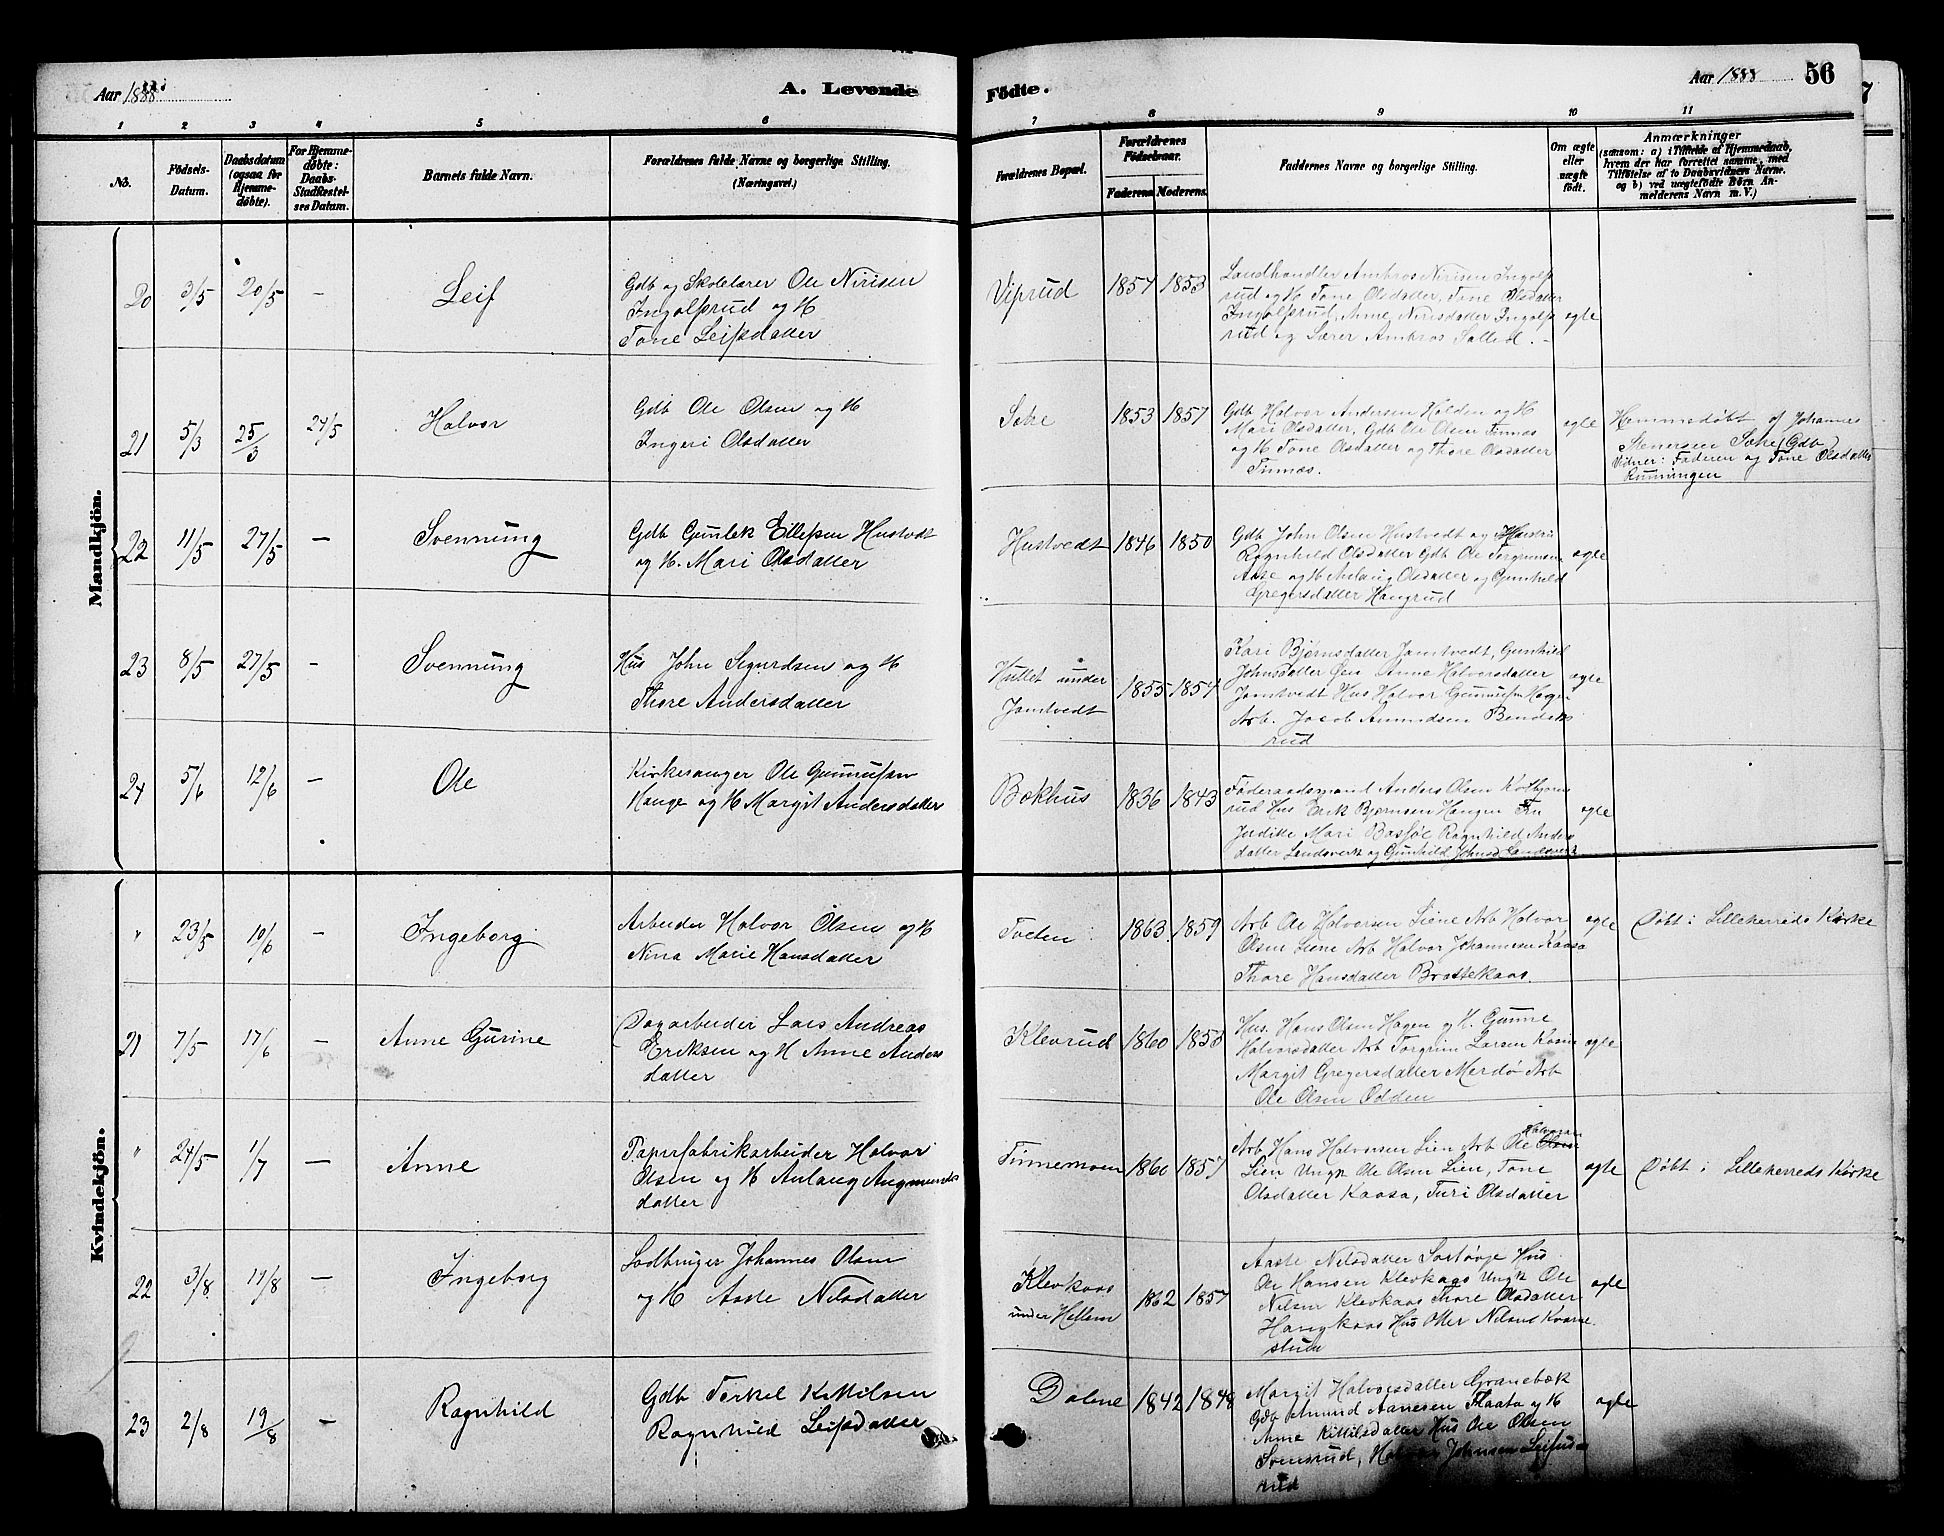 Aar 1888
A. Levende
Födte.
Aar 1888
56
1 2 3 4 5 6 7 8 9 10 11
No.
Födsels-
Datum.
Daabsdatum
(ogsaa for
Hjemme-
döbte).
For Hjemme-
döbte:
Daabs-
Stadfæstel-
ses Datum.
Barnets fulde Navn.
Forældrenes fulde Navne og borgerlige Stilling.
(Næringsvei.)
Forældrenes Bopæl.
Forældrenes
Födselsaar.
Faderens Moderens
Faddernes Navne og borgerlige Stilling.
Om ægte
eller
uægte
födt.
Anmærkninger
(saasom: a) i Tilfælde af Hjemmedaab,
hvem der har forrettet samme, med
Tilföielse af to Daabsvidners Navne.
og b) ved uægtefödte Börn An-
melderens Navn m. V.)
Mandkjön.
20 3/5 20/5 -
Leif
Gdb og Skolelærer Ole Nirisen
Ingolfsrud og H
Tone Leifsdatter
Viprud
1857 1853
Landhandler Ambros Nirisen Ingolfs
rud og H Tone Olsdatter, Tone Olsdatter
Ingolfsrud, Anne Nirisdatter Ingolfs
rud og Lærer Ambros
ægte
21 5/3 25/3 24/5
Halvor
Gdb Ole Olsen og H
Ingeri Olsdatter
Soke
1853 1857
Gdb Halvor Andersen Holden og H
Mari Olsdatter, Gdb Ole Olsen Tinnæs
og H Tone Olsdatter og Thore Olsdatter
Tinnæs.
ægte
Hemmedøbt af Johannes
Stenersen Soke (Gdb)
Vidner: Faderen og Tone Olsdatter
22 11/5 27/5 —
Svennung
Gdb Gunlek Ellefsen Hustvedt
og H. Mari Olsdatter
Hustvedt
1846 1850
Gdb John Olsen Hustvedt og Hustru
Ragnhild Olsdatter Gdb Ole Torgrimsen
Aase og H Aslaug Olsdatter og Gunhild
Gregersdatter Haugrud
ægte
23 8/5 27/5 -
Svennung
Hus John Sigurdsen og H
Thore Andersdatter
Hullet under
Jamtvedt
1855 1854
Kari Bjørnsdatter Jamtvedt, Gunhild
Johnsdatter Øen Anne Halvorsdatter
Jamtvedt Hus Halvor Gunnufsen Hagen
Arb. Jacob Amundsen Bendiks
rud
ægte
24 5/6 12/6 —
Ole
Kirkesanger Ole Gunnufsen
Hauge og H Margit Andersdatter
Bækhus
1836 1843
Føderaadsmand Anders Olsen Kolbjørns
rud Hus Erik Bjørnsen Haugen Fru
Judithe Mari Basføe Ragnhild Anders
datter Landsverk og Gunhild Johnsd Landsverk
ægte
Kvindekjön.
" 23/5 10/6 —
Ingeborg
Arbeider Halvor Olsen og H
Nina Marie Hansdatter
Tveten
1863 1859
Arb Ole Halvorsen Liene Arb Halvor
Olsen Liene Arb Halvor Johannesen Kaasa
Thore Hansdatter Brattekaas.
ægte
Døbt i Lilleherreds Kirke
21 7/5 17/6 —
Anne Gurine
Dagarbeider Lars Andreas
Eriksen og H Anne Anders
datter
Klevrud
1860 1853
Hus. Hans Olsen Hagen og H. Gunne
Halvorsdatter Arb Torgrim Larsen
Margit Gregersdatter Merdø Arb
Ole Olsen Odden
ægte
" 24/5 1/7 —
Anne
Papirfabrikarbeider Halvor
Olsen og H Aslaug Augmunds
datter
Tinnemoen
1860 1857
Halvorsen
Arb Hans Halvorsen Lien Arb Ole Olsen
Lien Ungk Ole Olsen Lien, Tone
Olsdatter Kaasa, Turi Olsdatter
ægte
Døbt i Lilleherreds Kirke
22 3/8 17/8 —
Ingeborg
Lodbruger Johannes Olsen
og H Aaste Nilsdatter
Klevkaas
under Hellem
1862 1857
Aaste Nilsdatter Hus
Ole Hansen Klevkaas Ungk Ole
Nilsen Klevkaas Thore Olsdatter
Haugkaas Hus Otter Nilsen Kvarne
stuen
ægte
23 2/8 19/8 —
Ragnhild
Gdb Terkel Kittilsen
Ragnhild Leifsdatter
Dalene
1842 1848
Margit Halvorsdatter Granebæk
Gdb Amund Aanesen Flaata og H
Anne Kittilsdatter Hus Ole Olsen
Svensrud, Halvor Johnsen Leifus
rud
ægte